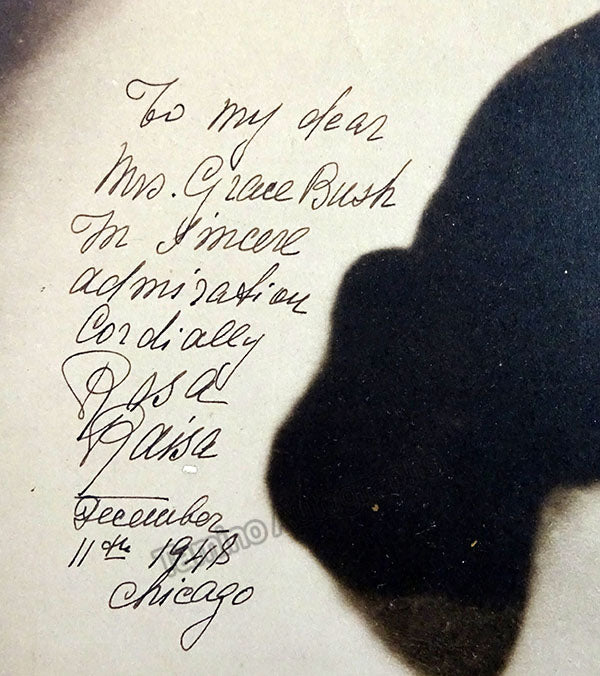 To my dear
Mrs. Grace Bush
In sincere
admiration
Cordially
Rosa
Raisa
December
11th 1948
Chicago
Tamino A